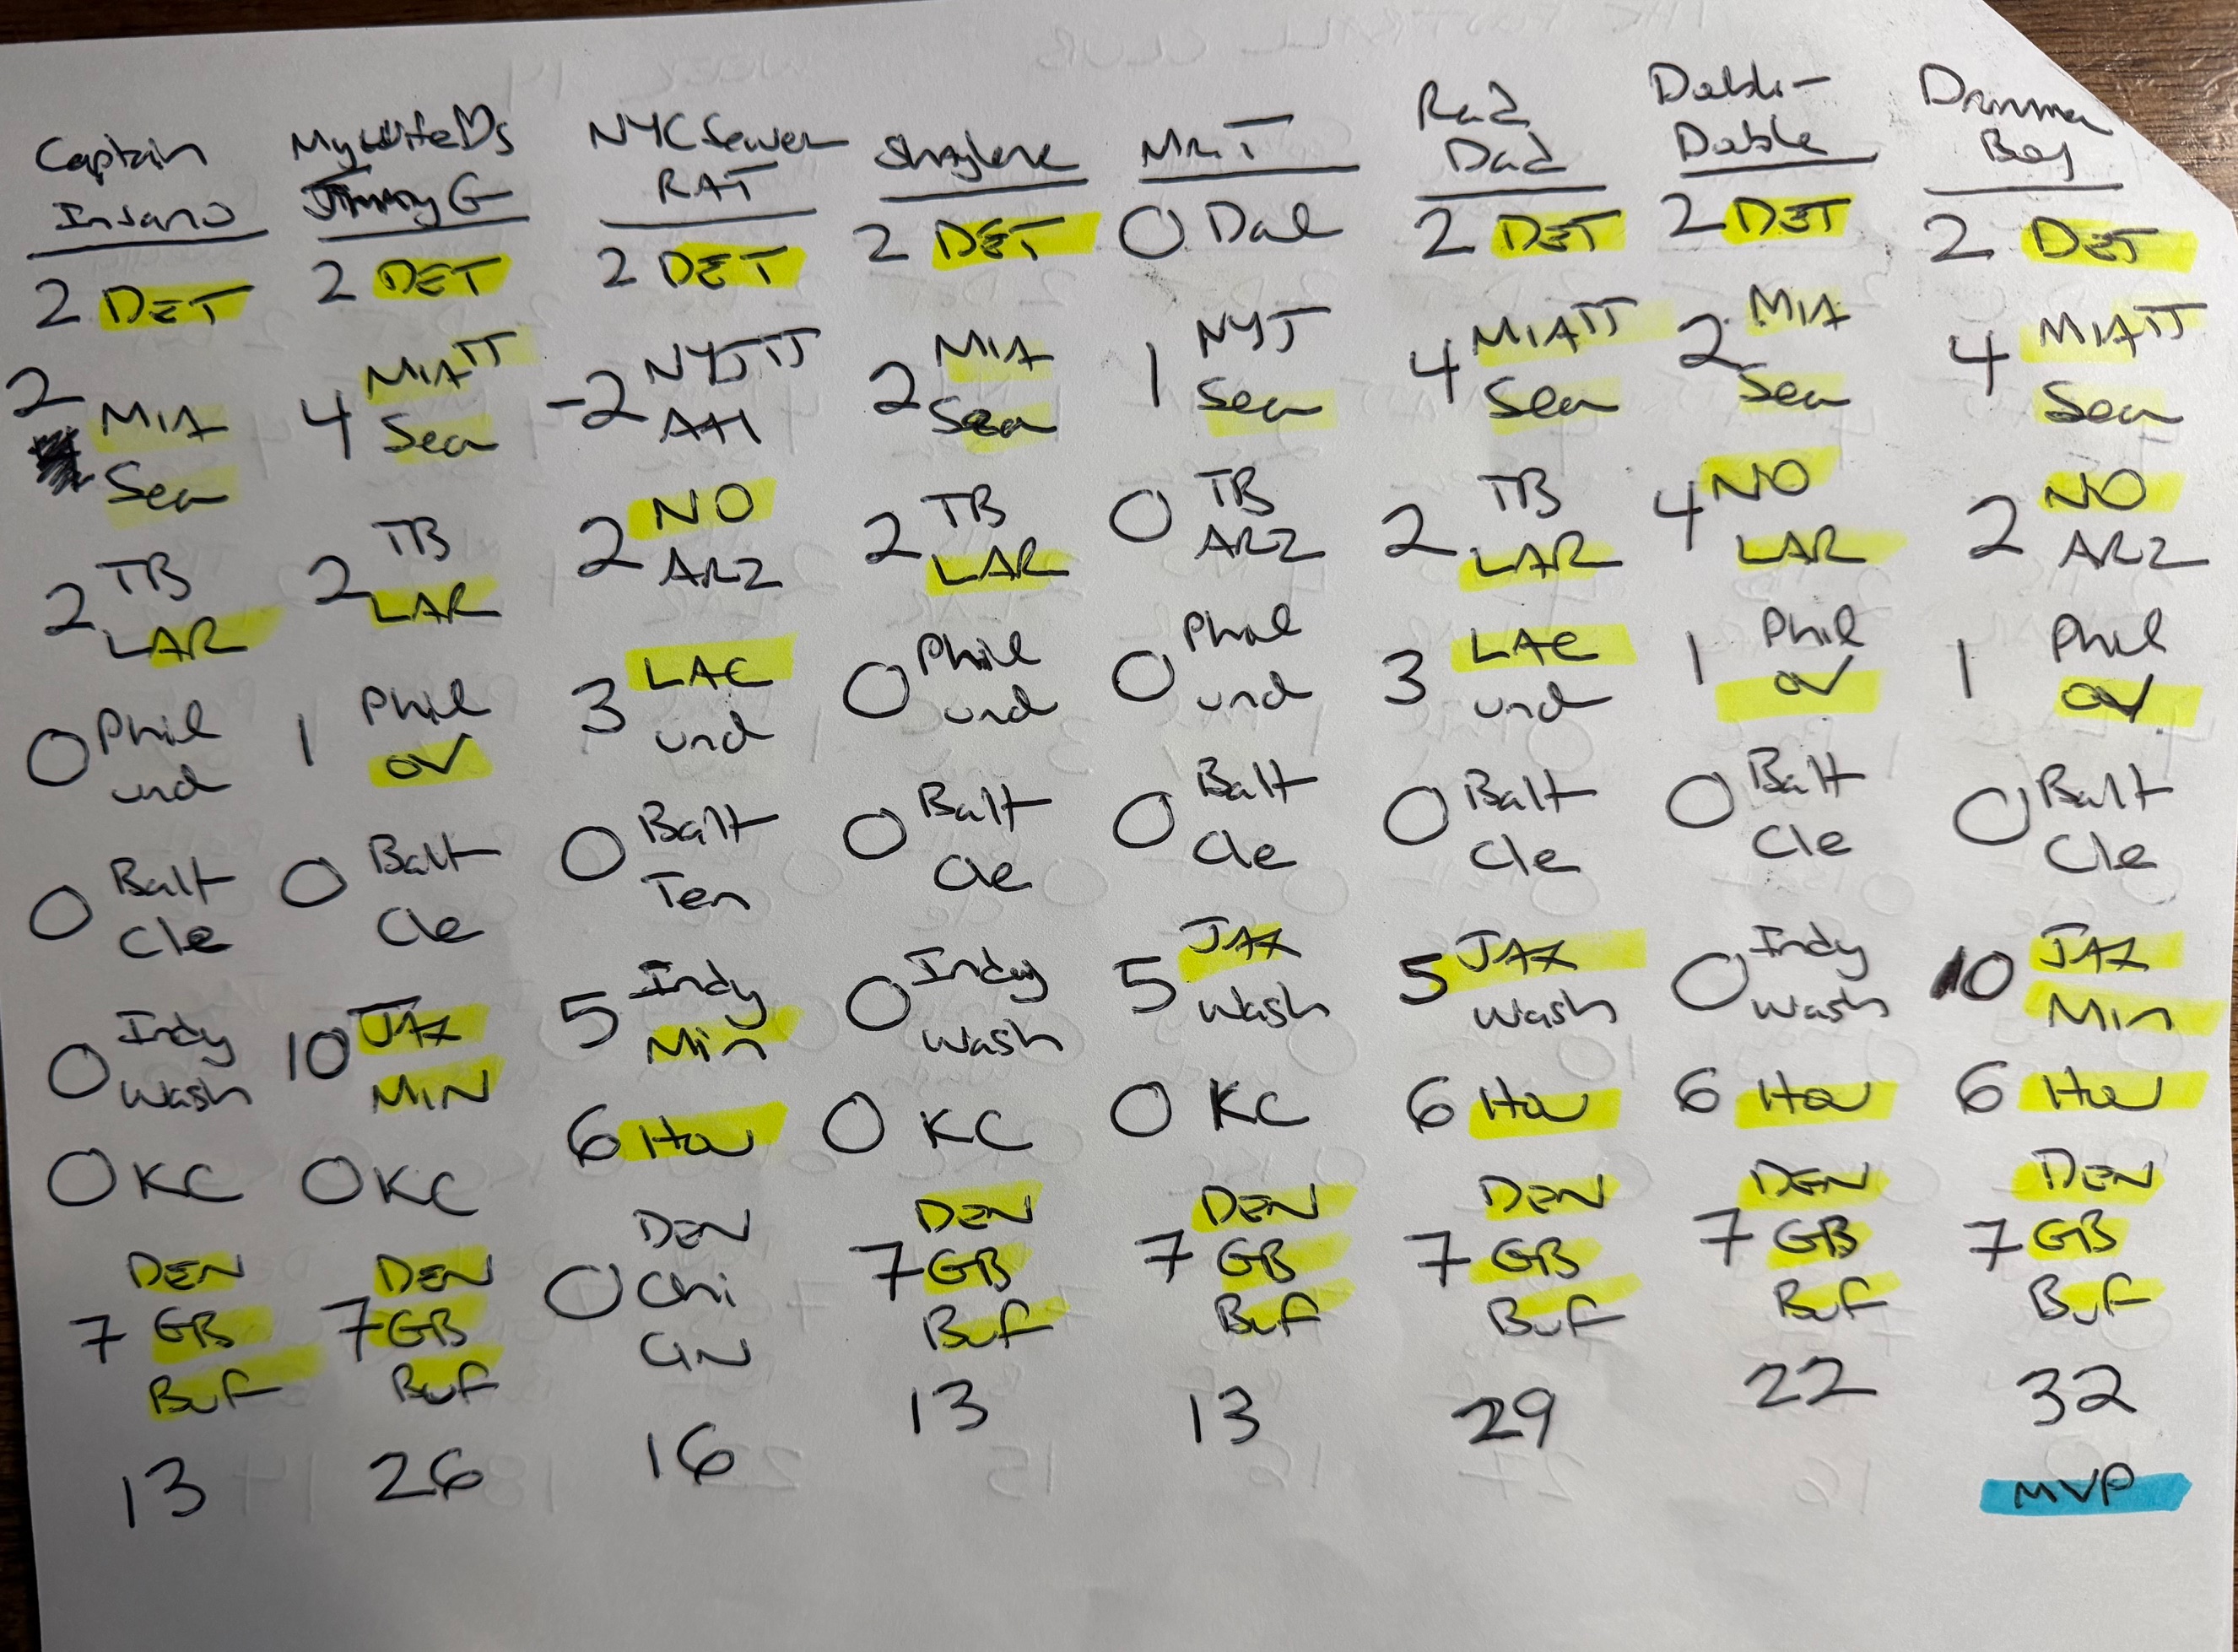 Captain
Insano
2 DET
2
MIA
Sea
2 TB
LAR
0 Phil
und
0 Balt
Cle
0 Indy
Wash
0 KC
DEN
7 GB
Buf
13
MyWifeDs
JimmyG
2 DET
MIATT
4 Sea
2 TB
LAR
1 Phil
OV
0 Balt
Cle
10 JAX
MIN
0 KC
DEN
7 GB
Buf
26
NYC Sewer
RAT
2 DET
NYJTT
-2 Atl
2 NO
ARZ
3 LAC
und
0 Balt
Ten
5 Indy
Min
6 Hou
DEN
0 Chi
CIN
16
Shaylene
2 DET
2 MIA
Sea
2 TB
LAR
0 Phil
und
0 Balt
Cle
0 Indy
Wash
0 KC
DEN
7 GB
Buf
13
Mr. T
0 Dal
1 NYJ
Sea
0 TB
ARZ
0 Phil
und
0 Balt
Cle
5 JAX
Wash
0 KC
DEN
7 GB
Buf
13
Rad
Dad
2 DET
4 MIATT
Sea
2 TB
LAR
3 LAC
und
0 Balt
Cle
5 JAX
Wash
6 Hou
DEN
7 GB
Buf
29
Doble-
Doble
2 DET
2 MIA
Sea
4 NO
LAR
1 Phil
OV
0 Balt
Cle
0 Indy
Wash
6 Hou
DEN
7 GB
Buf
22
Drama
Boy
2 DET
4 MIATT
Sea
2 NO
ARZ
1 Phil
OV
0 Balt
Cle
10 JAX
Min
6 Hou
DEN
7 GB
Buf
32
MVP